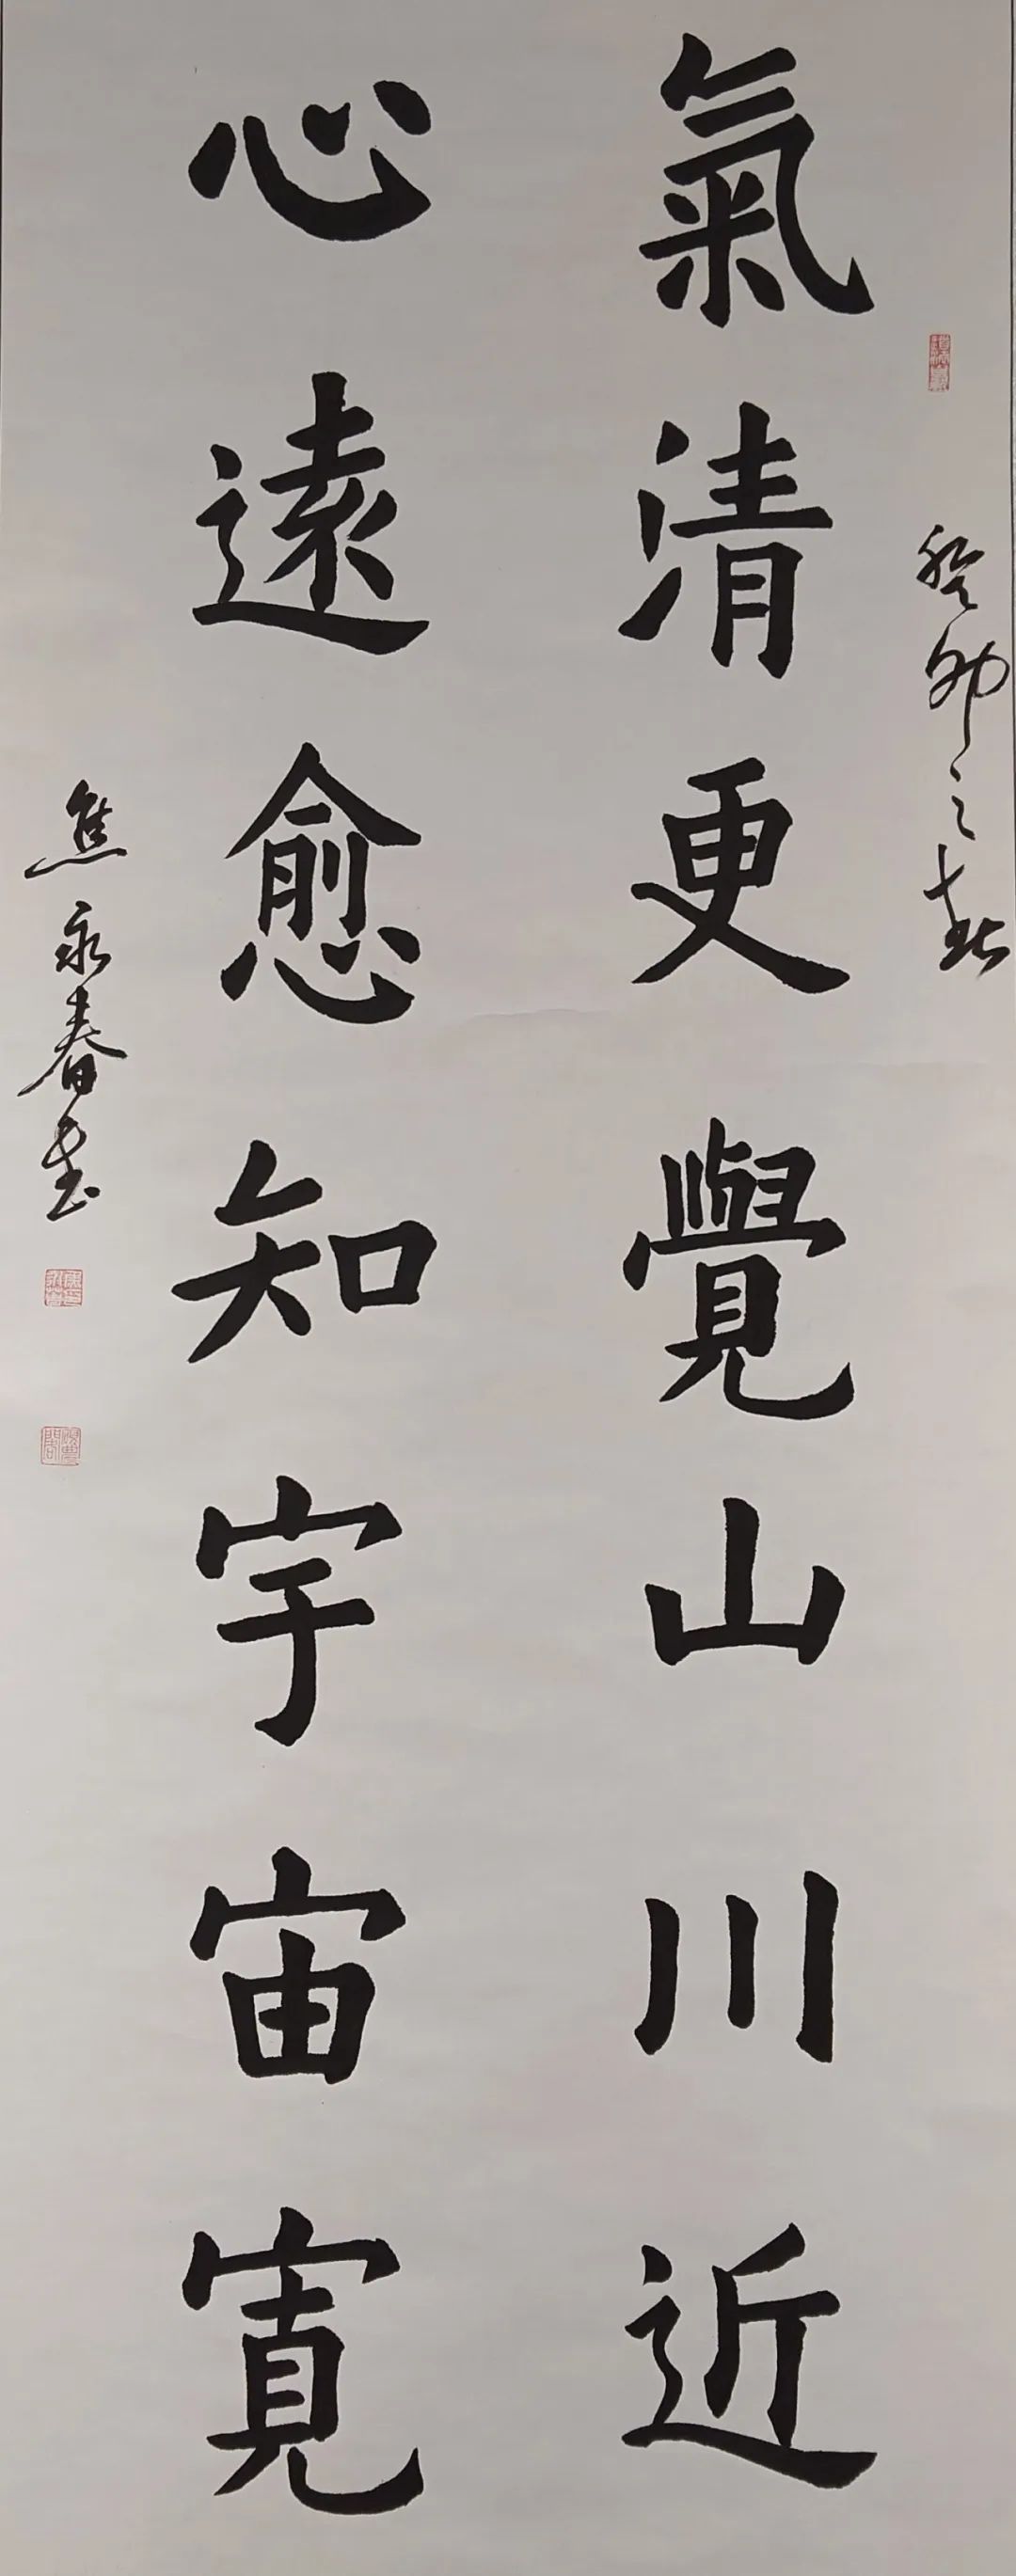 癸卯之春
氣清更覺山川近
心遠愈知宇宙寬
焦永春書